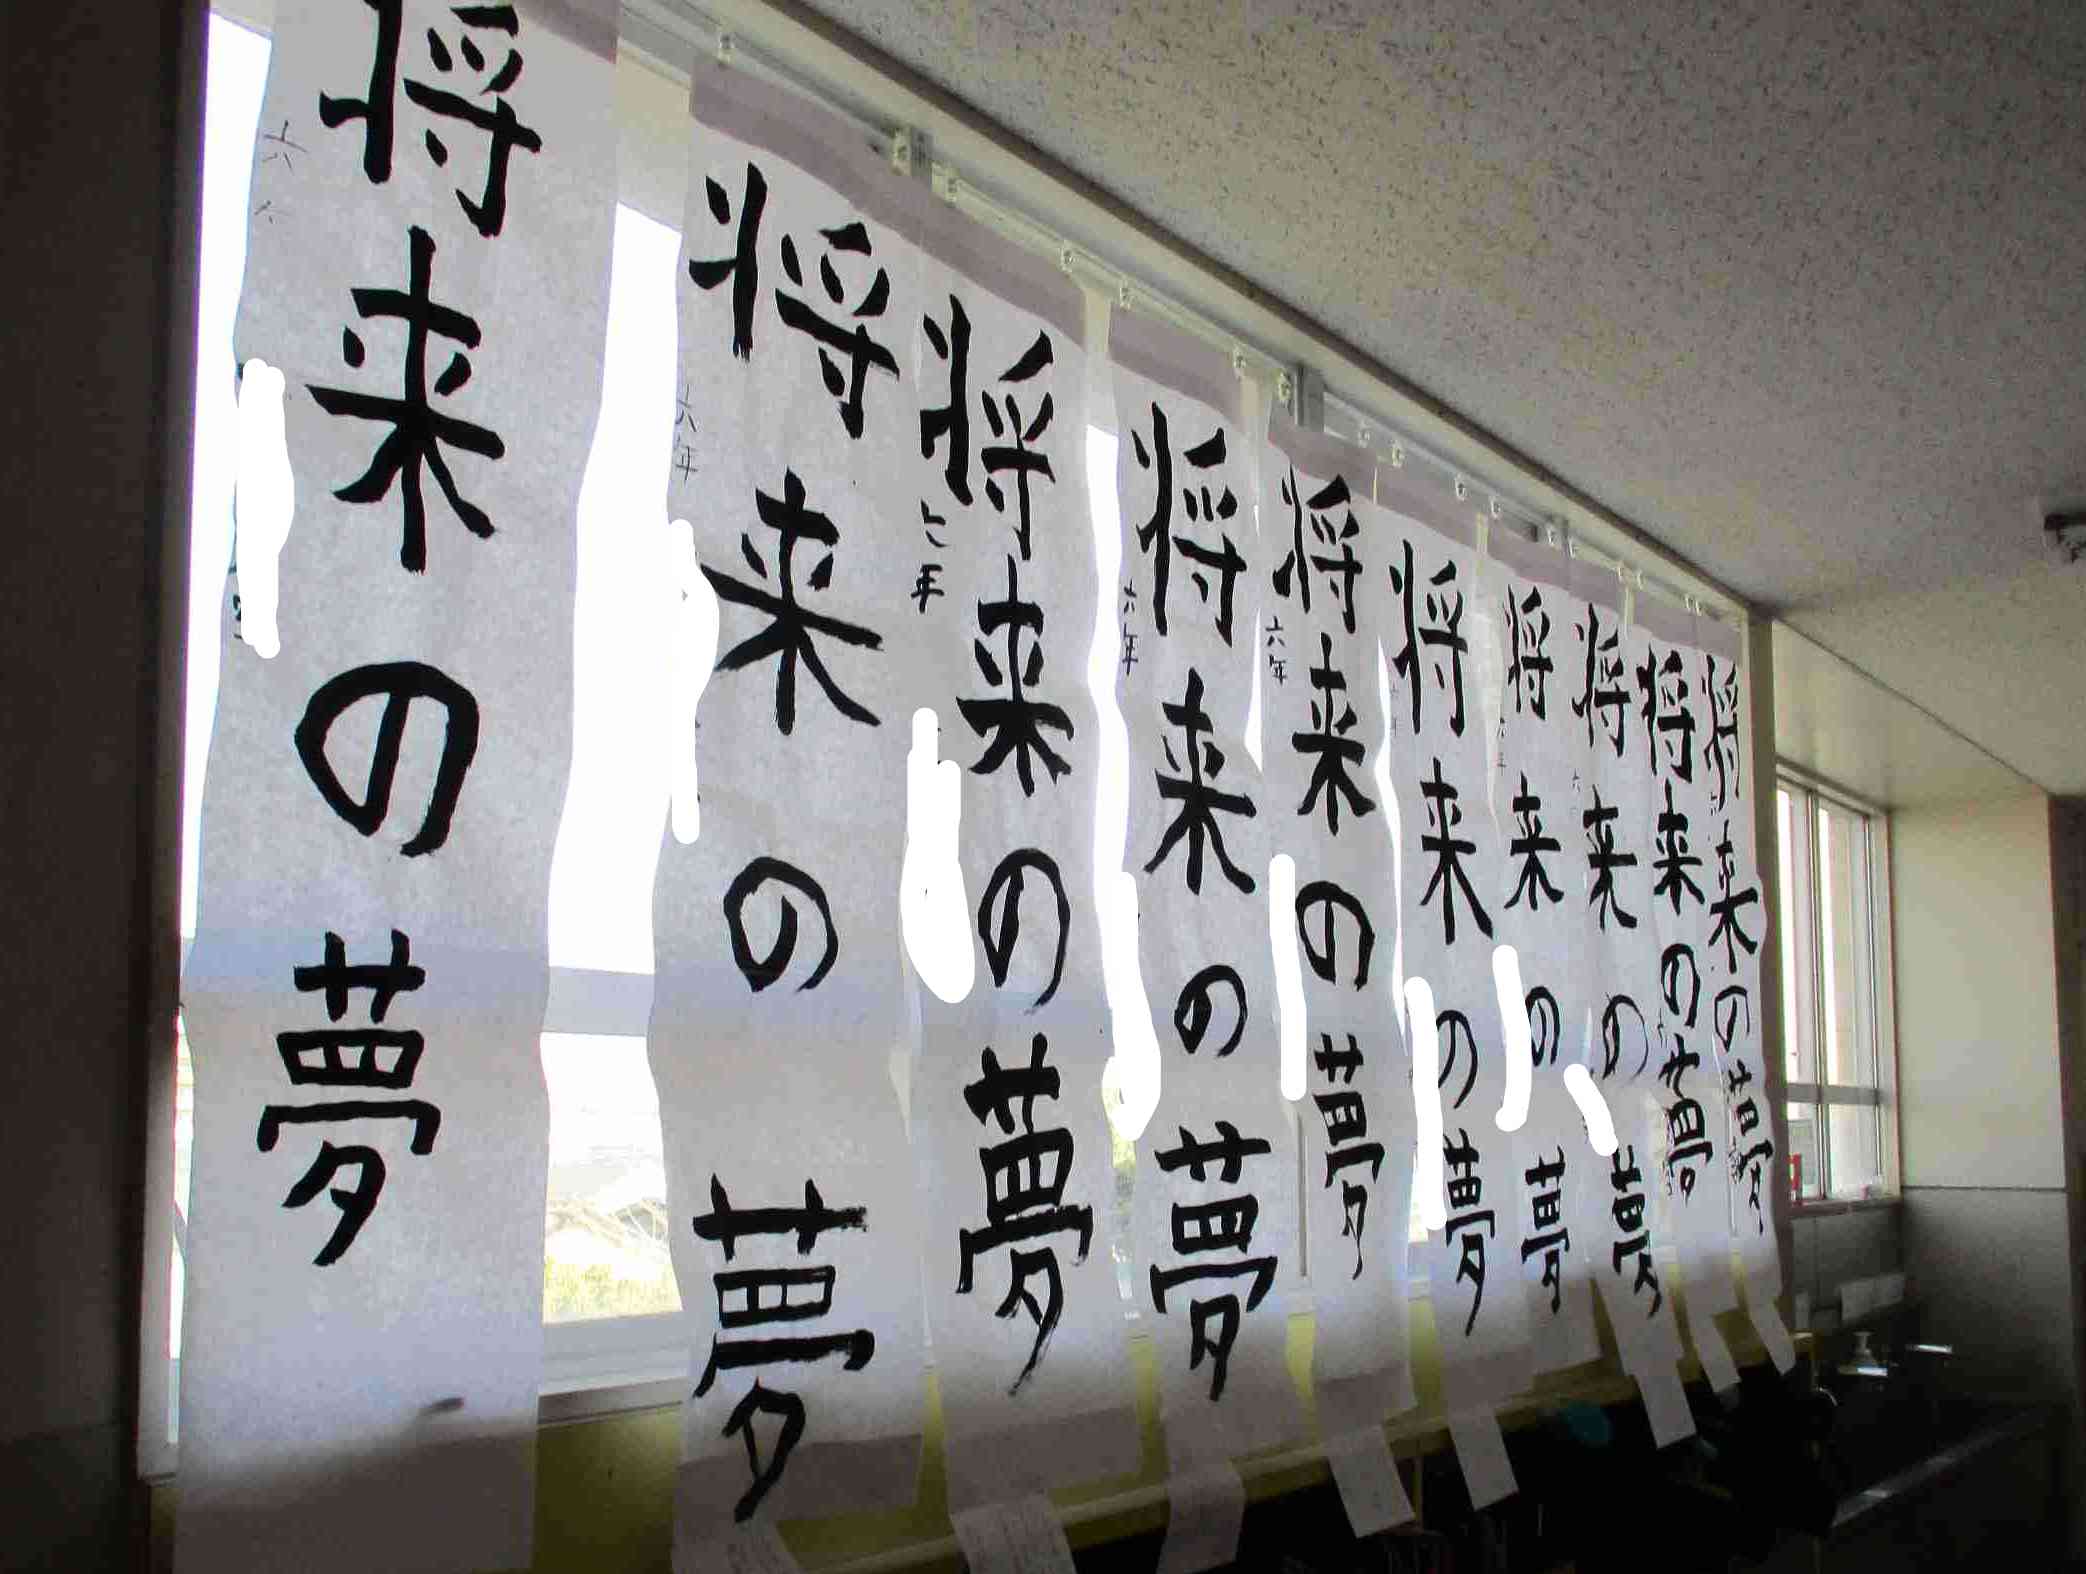 将来の夢
六
将来の夢
六年
将来の夢
六年
将来の夢
六年
将来の夢
六年
将来の夢
将来の夢
将来の夢
将来の夢
将来の夢